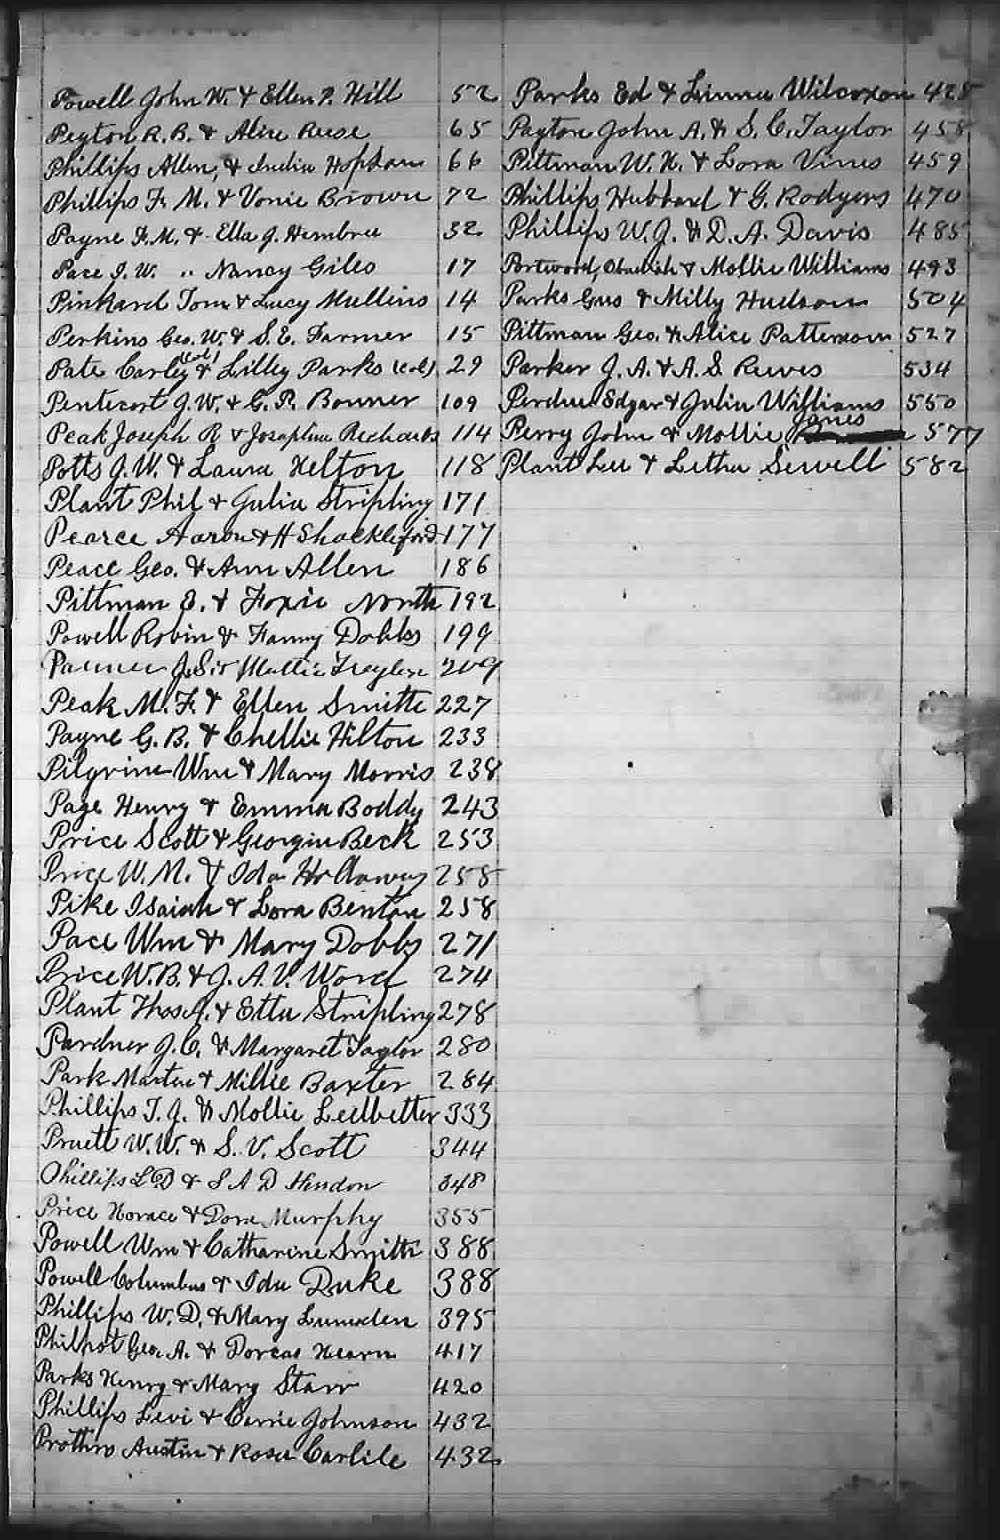 Powell John W. & Ellen P. Hill 52
Peyton R. B. & Alice Reese 65
Phillips Allen, & India Hopkans 66
Phillips F. M. & Vonie Brown 72
Payne F. M. & Ella J. Hembree 32
Pace I. W. " Nancy Giles 17
Pinkard Tom & Lucy Mullins 14
Perkins Geo. W. & S. E. Farmer 15
Pate Carley (Col) & Lilley Parks (Col) 29
Pentecort J. W. & G. P. Bonner 109
Peak Joseph R & Josephine Richards 114
Potts J. W. & Laura Helton 118
Plant Phil & Julia Stripling 171
Pearce Aaron & H Shackleford 177
Peace Geo. & Ann Allen 186
Pittman E. & Foxie North 192
Powell Robin & Fanny Dobbs 199
J. S. & Mattie 209
Peak M. F. & Ellen Smith 227
Payne G. B. & Chellie Hilton 233
Pilgrim Wm & Mary Morris 238
Page Henry & Emma Boddy 243
Price Scott & Georgia Beck 253
Price W. M. & Ida Hollaway 258
Pike Isaiah & Lora Benton 258
Pace Wm & Mary Dobbs 271
Price W. B. & J. A. V. Word 274
Plant Thos J. & Etta Stripling 278
Pardner J. C. & Margaret Taylor 280
Park Marten & Millie Baxter 284
Phillips T. J. & Mollie Ledbetter 333
Pruett W. W. & S. V. Scott 344
Phillips L D & S A D Hendon 348
Price Horace & Dora Murphy 355
Powell Wm & Catharine Smith 388
Powell Columbus & Ida Duke 388
Phillips W. D. & Mary Lumsden 395
Philpot Geo. A. & Dorcas Hearn 417
Parks Henry & Mary Starr 420
Phillips Levi & Carrie Johnson 432
Prothro Austin & Rosa Carlile 432
Parks Ed & Linnie Wilcoxon 428
Payton John A. & S. C. Taylor 458
Pittman W. H. & Lora Vines 459
Phillips Hubbard & G. Rodgers 470
Phillips W. J. & D. A. Davis 485
Portwood, Obadiah & Mollie Williams 493
Parks Gus & Milly Hudson 504
Pittman Geo. & Alice Patterson 527
Parker J. A. & A. S. Reeves 534
Perdue Edgar & Julia Williams 550
Perry John & Mollie Jones 577
Plant Lee & Letha Sewell 582